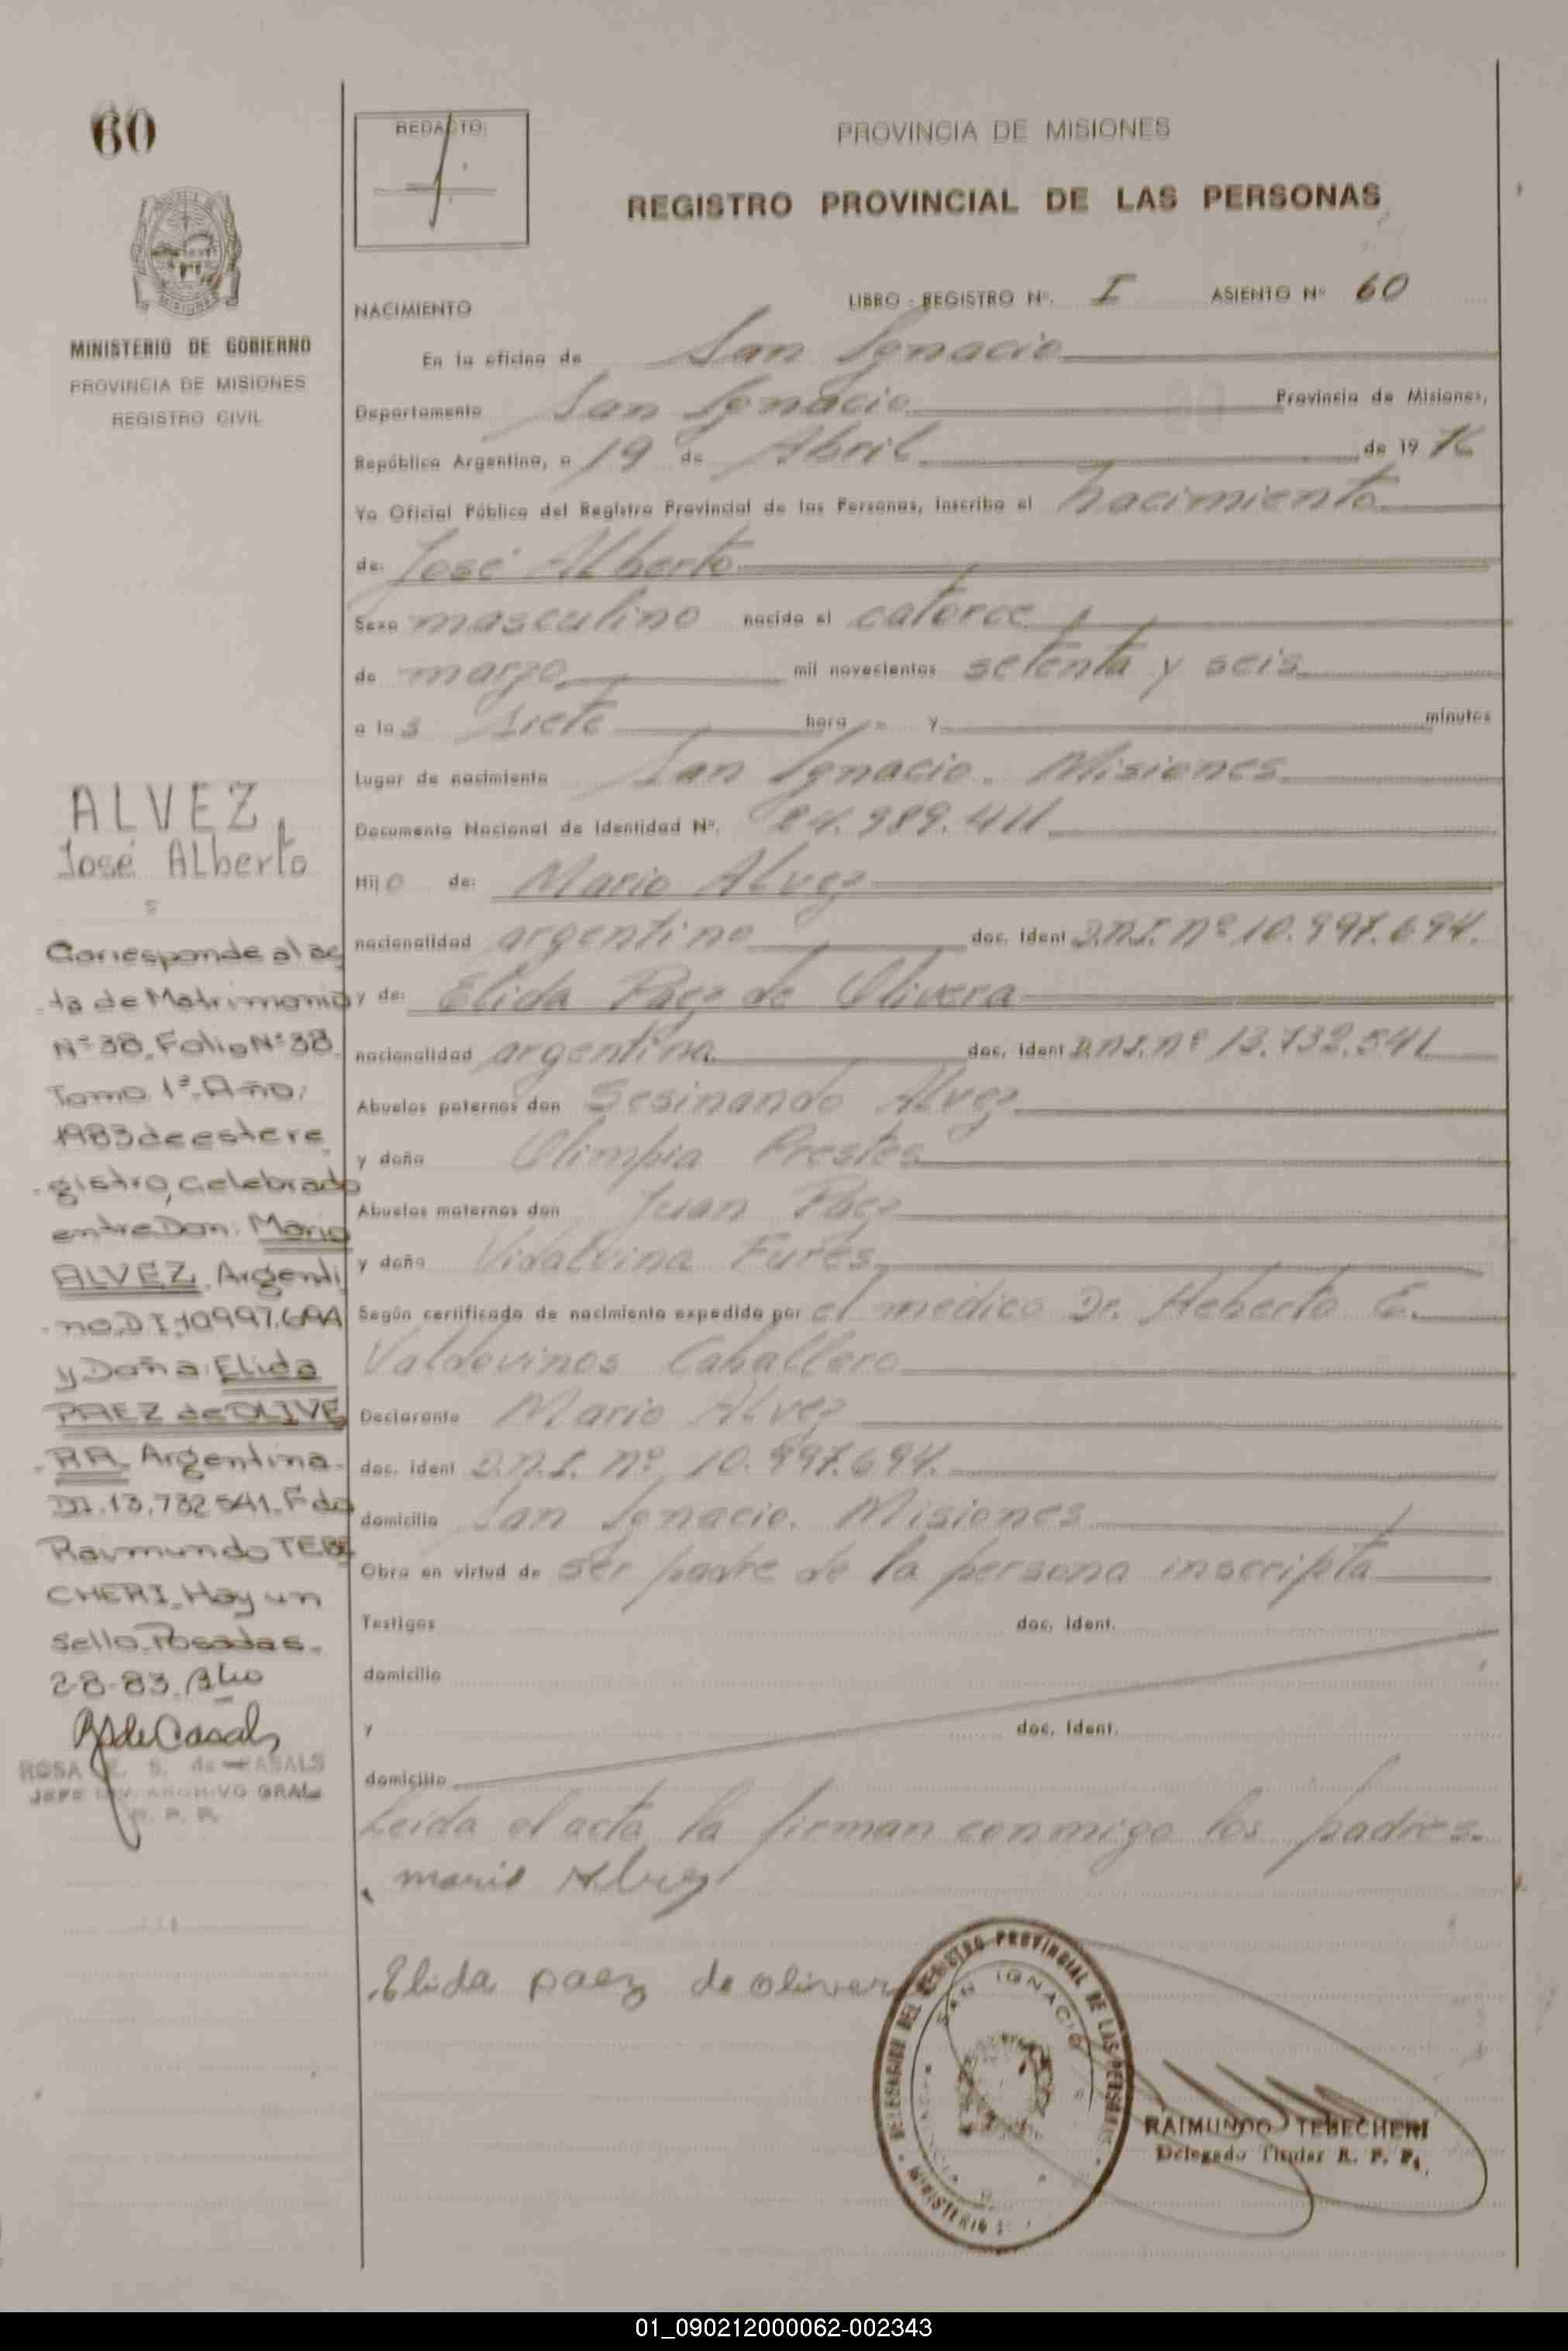 60
MINISTERIO DE GOBIERNO
PROVINCIA DE MISIONES
REGISTRO CIVIL
ALVEZ,
José Alberto
Corresponde al ac
ta de Matrimonio
Nº 38, Folio Nº 38
Tomo 1º, Año:
1983 de este re
gistro, celebrado
entre Don: Mario
ALVEZ, Argenti
no, D I, 10997.694
y Doña: Elida
PAEZ de OLIVE
RA, Argentina
DI. 13.732 541. Fdo
Raimundo TEBE
CHERI, Hay un
Sello, Posadas.
2-8-83.
RSdeCasals
ROSA E. S. de CASALS
JEFE DIV. ARCHIVO GRAL
R. P. P.
REDACTO:
PROVINCIA DE MISIONES
REGISTRO PROVINCIAL DE LAS PERSONAS
NACIMIENTO LIBRO - REGISTRO Nº. I ASIENTO Nº 60
En la oficina de San Ignacio
Departamento San Ignacio Provincia de Misiones,
República Argentina, a 19 de Abril de 19 76
Yo Oficial Público del Registro Provincial de las Personas, inscribo el nacimiento
de: José Alberto
Sexo masculino nacido el catorce
de marzo mil novecientos setenta y seis
a las siete hora = y minutos
Lugar de nacimiento San Ignacio. Misiones
Documento Nacional de Identidad Nº. 24.989.411
Hijo de: Mario Alvez
nacionalidad argentino doc. ident D.N.I. Nº 10.997.694.
y de: Elida Paez de Olivera
nacionalidad argentina doc. ident D.N.I. Nº 13.732.541
Abuelos paternos don Sesinando Alvez
y doña Olimpia Prestes
Abuelos maternos don Juan Paez
y doña Vidalvina Furés
Según certificado de nacimiento expedido por el medico Dr. Heberto E.
Valdovinos Caballero
Declarante Mario Alvez
doc. ident D.N.I. Nº 10.997.694.
domicilio San Ignacio. Misiones
Obra en virtud de ser padre de la persona inscripta
Testigos doc. ident.
domicilio
y doc. ident.
domicilio
Leida el acta, la firman conmigo los padres.
mario Alvez
Elida paez de oliver
DELEGACION DEL REGISTRO PROVINCIAL DE LAS PERSONAS
SAN IGNACIO
MINISTERIO
RAIMUNDO TEBECHERI
Delegado Titular R. P. P.
01_090212000062-002343